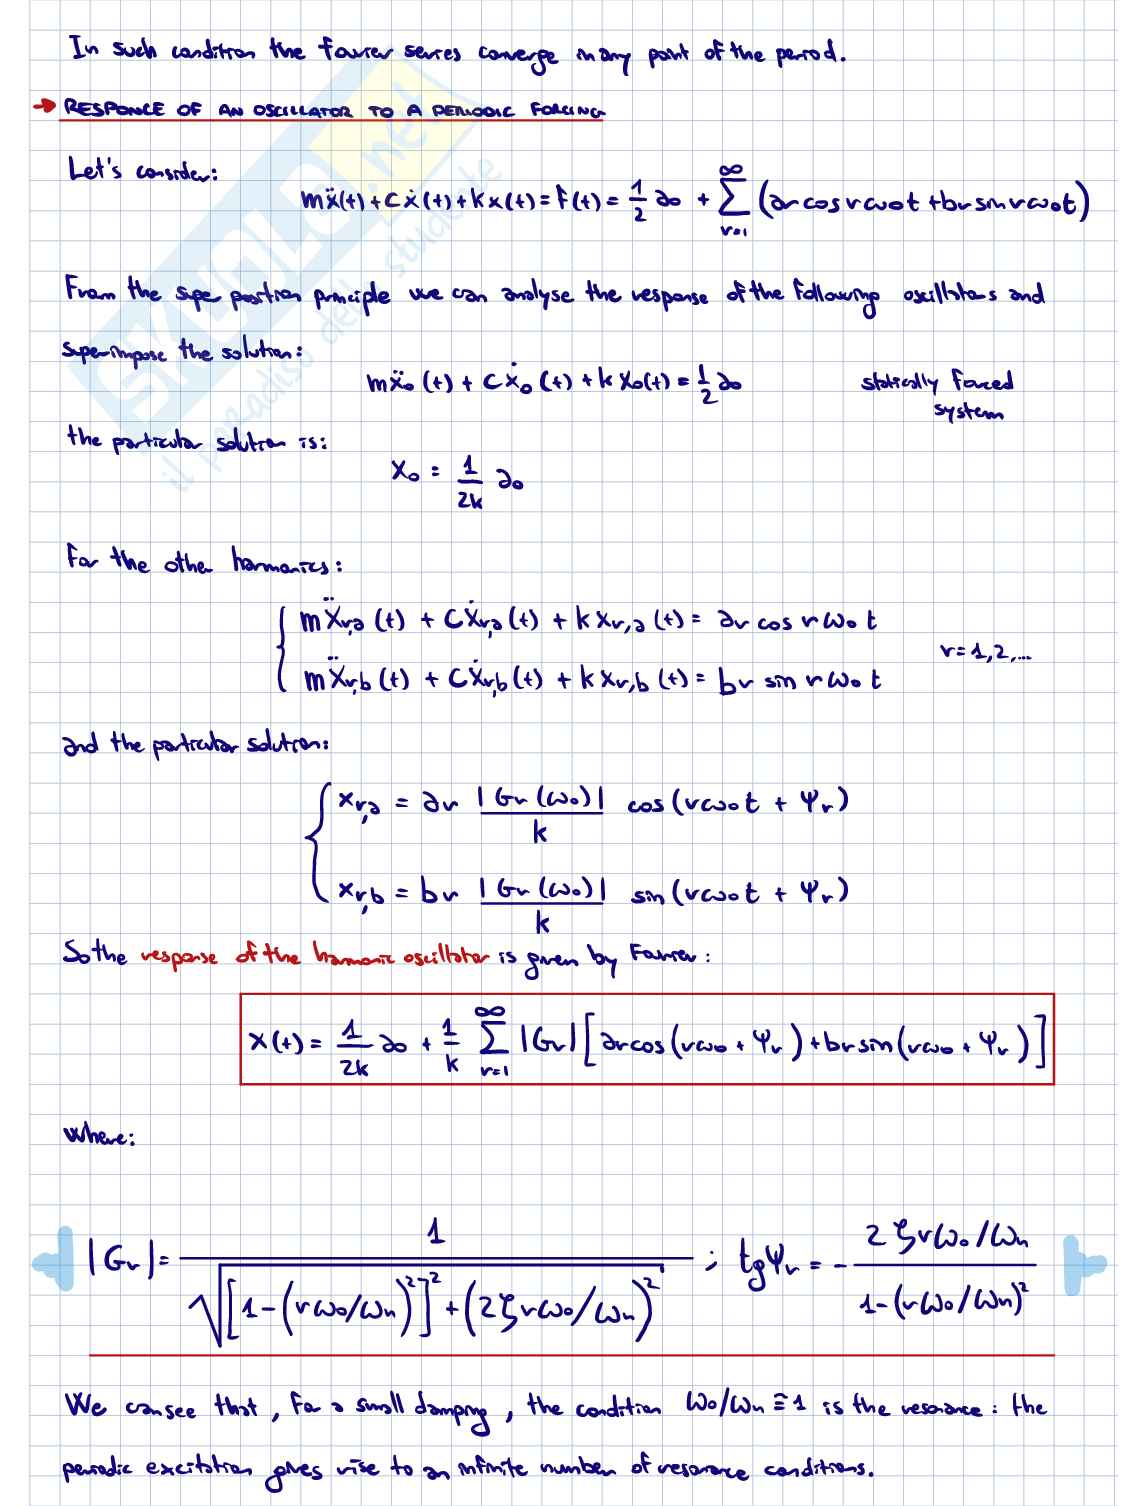 In such condition the Fourier series converge in any point of the period.
→ RESPONCE OF AN OSCILLATOR TO A PERIODIC FORCING
Let's consider:
mẍ(t) + cẋ(t) + kx(t) = f(t) = 1/2 a₀ + ∑_{r=1}^{∞} (ar cos rω₀t + br sin rω₀t)
From the super position principle we can analyse the response of the following oscillators and
superimpose the solution:
mẍ₀(t) + cẋ₀(t) + k x₀(t) = 1/2 a₀ statically forced
system
the particular solution is:
x₀ = 1/2k a₀
For the other harmonics:
mẍr,a(t) + cẋr,a(t) + k xr,a(t) = ar cos rω₀t
r=1,2,...
mẍr,b(t) + cẋr,b(t) + k xr,b(t) = br sin rω₀t
and the particular solution:
xr,a = ar |Gr(ω₀)|/k cos(rω₀t + ψr)
xr,b = br |Gr(ω₀)|/k sin(rω₀t + ψr)
So the response of the harmonic oscillator is given by Fourier:
x(t) = 1/2k a₀ + 1/k ∑_{r=1}^{∞} |Gr| [ar cos(rω₀ + ψr) + br sin(rω₀ + ψr)]
where:
|Gr| = 1/√([1-(rω₀/ωn)²]² + (2ζrω₀/ωn)²) ; tgψr = - 2ζrω₀/ωn / 1-(rω₀/ωn)²
We can see that, for a small damping, the condition ω₀/ωn ≅ 1 is the resonance: the
periodic excitation gives rise to an infinite number of resonance conditions.
SKUOLA.net
il paradiso dello studente